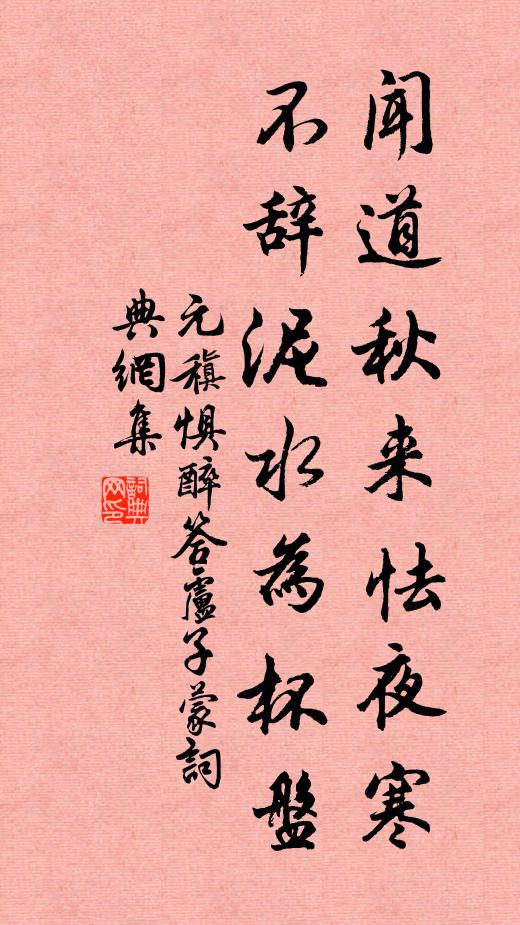 闻道秋来怯夜寒
不辞泥水為杯盤
元稹惧醉答盧子蒙詞
典網集
詞典
网印